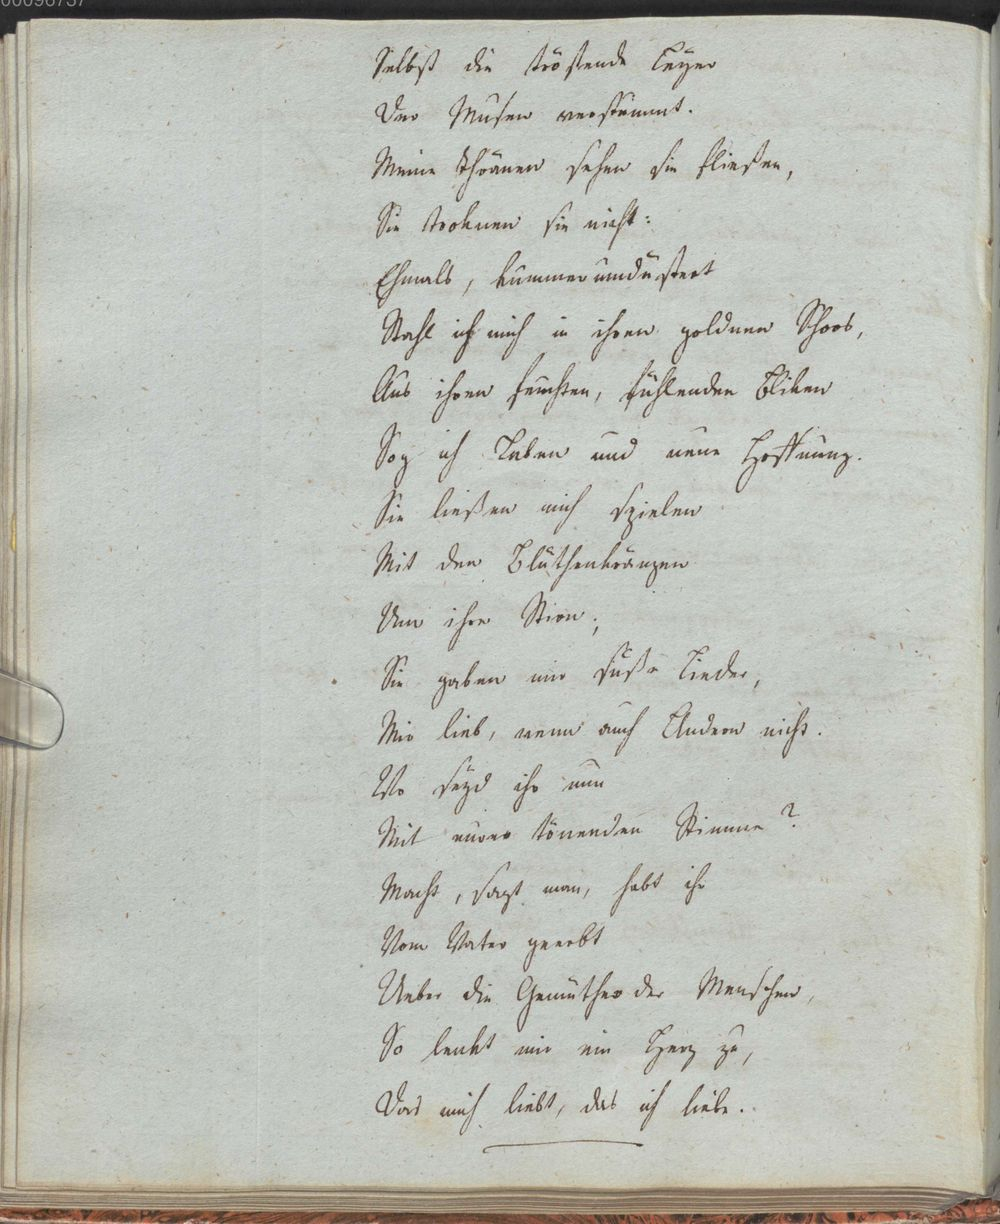 00096737
Selbst die tröstende Leyer
Der Musen verstummt.
Meine Thränen sehen sie fließen,
Sie troknen sie nicht:
Ehmals, kummerumdüstert
Stahl ich mich in ihren goldnen Schoos,
Aus ihren feuchten, fühlenden Bliken
Sog ich Leben und neue Hoffnung.
Sie ließen mich spielen
Mit den Blüthenkränzen
Um ihre Stirn;
Sie gaben mir süße Lieder,
Mir lieb, wenn auch Andern nicht.
Wo seyd ihr nun
Mit eurer tönenden Stimme?
Macht, sagt man, habt ihr
Vom Vater geerbt
Ueber die Gemüther der Menschen,
So lenkt mir ein Herz zu,
Das mich liebt, das ich liebe.